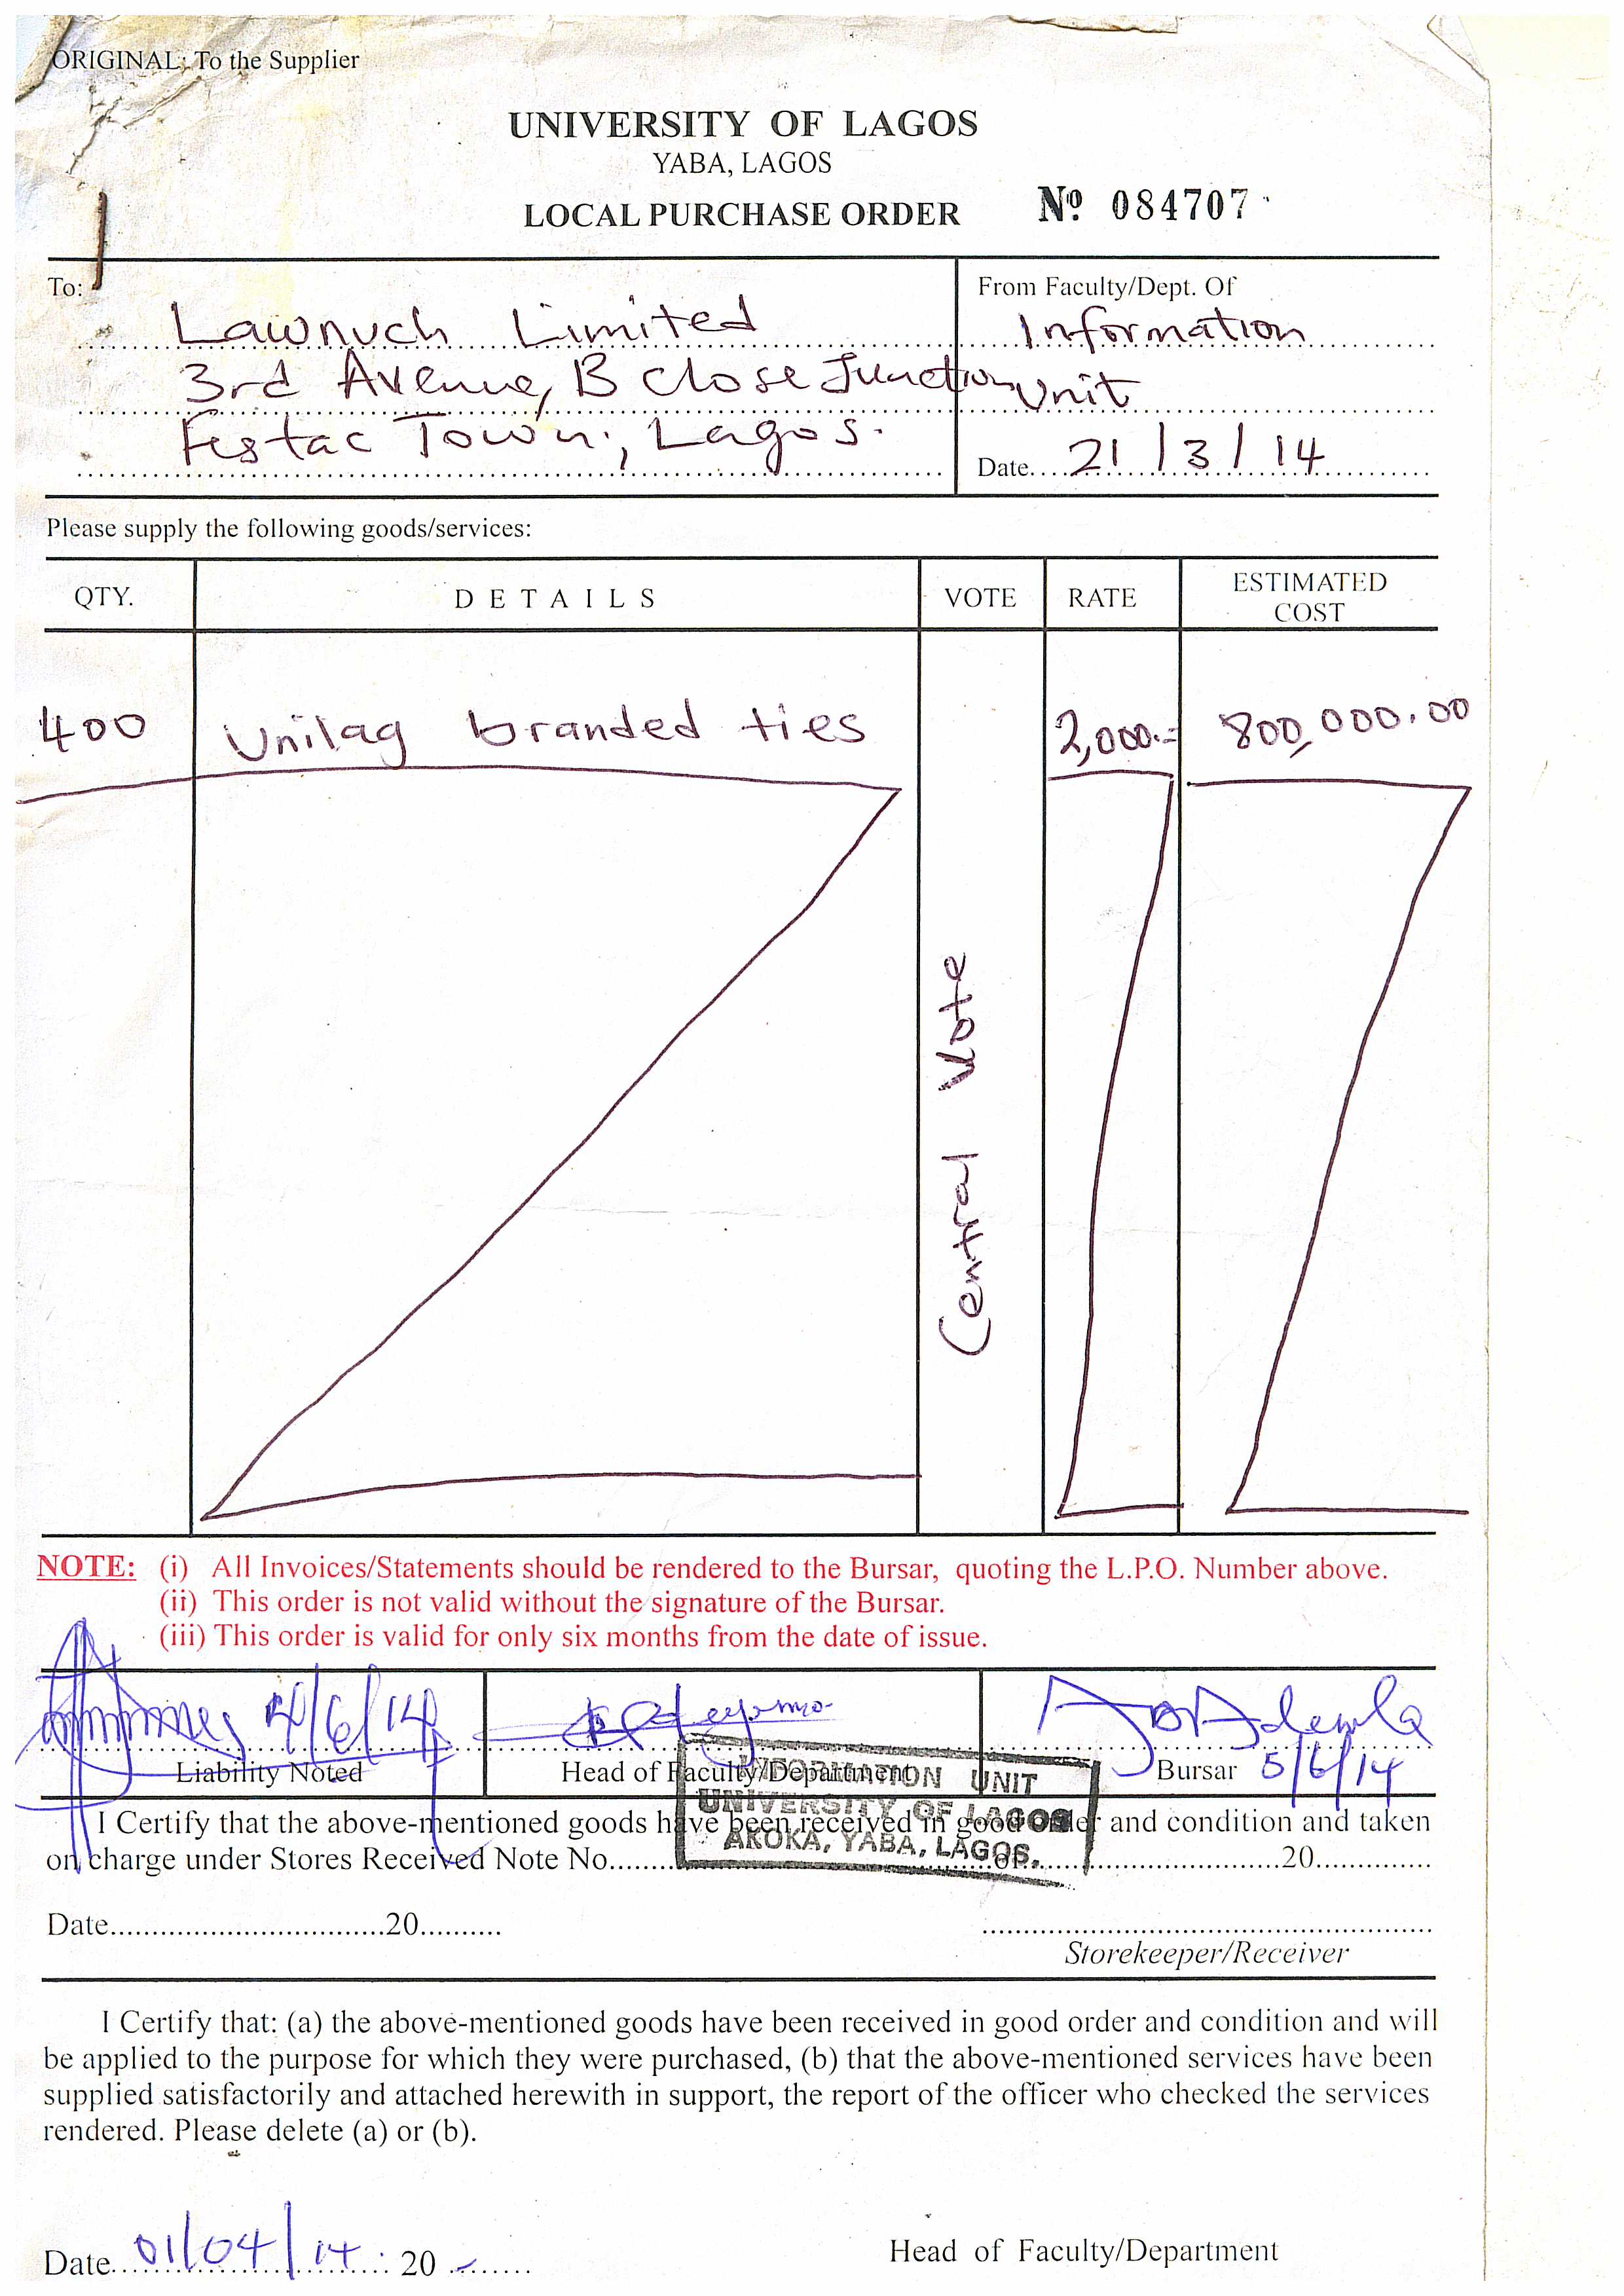 ORIGINAL: To the Supplier
UNIVERSITY OF LAGOS
YABA, LAGOS
LOCAL PURCHASE ORDER
Nº 084707
To:
Lawnuch Limited
3rd Avenue, B Close Junction
Festac Town, Lagos.
From Faculty/Dept. Of
Information
Unit
Date 21/3/14
Please supply the following goods/services:
QTY. DETAILS VOTE RATE ESTIMATED COST
400 Unilag branded ties 2,000.= 800,000.00
Central Vote
NOTE: (i) All Invoices/Statements should be rendered to the Bursar, quoting the L.P.O. Number above.
(ii) This order is not valid without the signature of the Bursar.
(iii) This order is valid for only six months from the date of issue.
4/6/14
Liability Noted
Head of Faculty/Department
Bursar 5/6/14
INFORMATION UNIT
UNIVERSITY OF LAGOS
AKOKA, YABA, LAGOS.
I Certify that the above-mentioned goods have been received in good order and condition and taken
on charge under Stores Received Note No. of 20
Date 20
Storekeeper/Receiver
I Certify that: (a) the above-mentioned goods have been received in good order and condition and will
be applied to the purpose for which they were purchased, (b) that the above-mentioned services have been
supplied satisfactorily and attached herewith in support, the report of the officer who checked the services
rendered. Please delete (a) or (b).
Date 01/04/14 20
Head of Faculty/Department